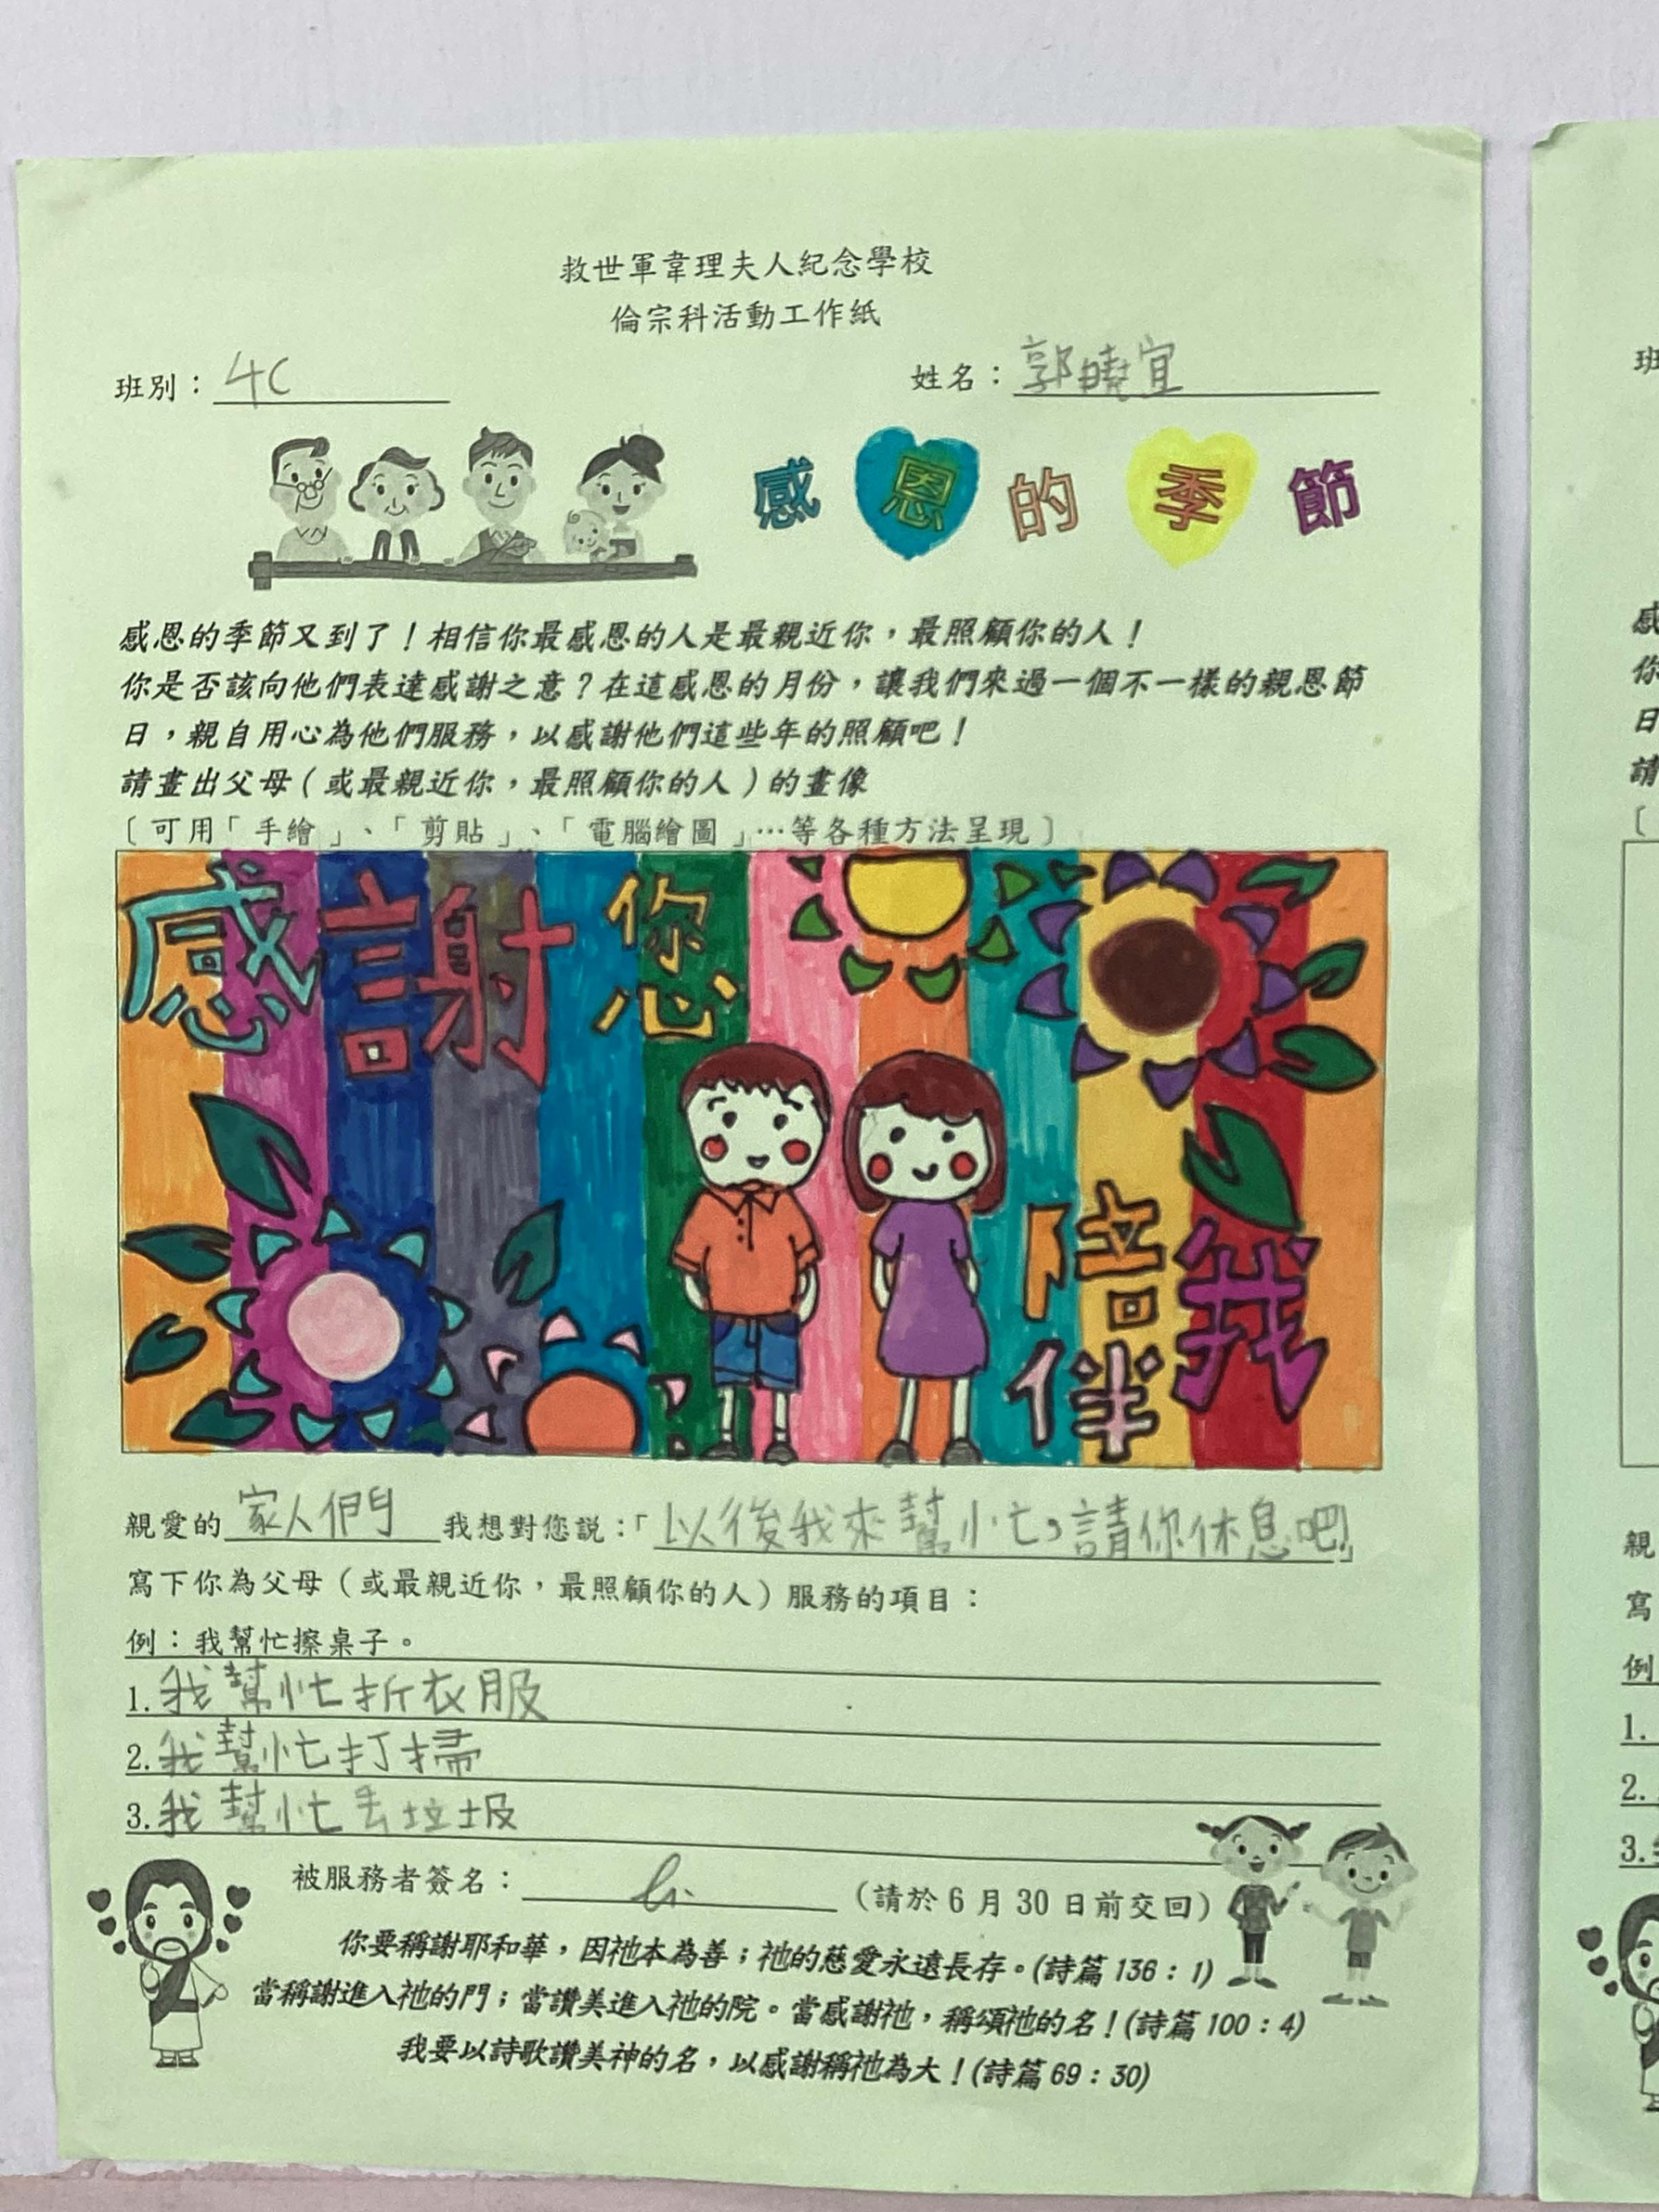 救世軍韋理夫人紀念學校
倫宗科活動工作紙
班別：4C 姓名：郭曉宜
感恩的季節
感恩的季節又到了！相信你最感恩的人是最親近你，最照顧你的人！
你是否該向他們表達感謝之意？在這感恩的月份，讓我們來過一個不一樣的親恩節
日，親自用心為他們服務，以感謝他們這些年的照顧吧！
請畫出父母（或最親近你，最照顧你的人）的畫像
〔可用「手繪」、「剪貼」、「電腦繪圖」…等各種方法呈現〕
感謝您
陪我
伴
親愛的家人們我想對您説：「以後我來幫忙，請你休息吧!」
寫下你為父母（或最親近你，最照顧你的人）服務的項目：
例：我幫忙擦桌子。
1.我幫忙折衣服
2.我幫忙打掃
3.我幫忙丢垃圾
被服務者簽名： （請於6月30日前交回）
你要稱謝耶和華，因祂本為善；祂的慈愛永遠長存。(詩篇136：1)
當稱謝進入祂的門；當讚美進入祂的院。當感謝祂，稱頌祂的名！(詩篇100：4)
我要以詩歌讚美神的名，以感謝稱祂為大！(詩篇69：30)
班
感
你
日
請
〔
親
寫
例
1.
2.
3.